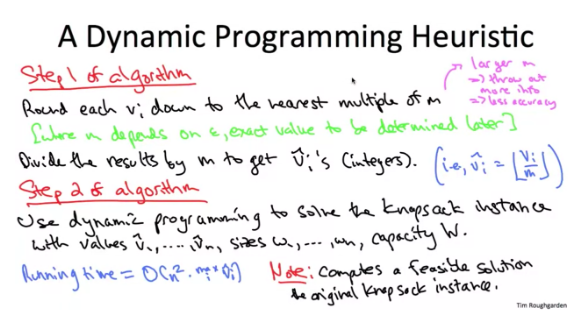 A Dynamic Programming Heuristic
Step 1 of algorithm
larger m
=> throw out
more info
=> less accuracy
Round each vi down to the nearest multiple of m
[where m depends on ε, exact value to be determined later]
Divide the results by m to get v̂i's (integers). (i.e., v̂i = ⌊vi/m⌋)
Step 2 of algorithm
Use dynamic programming to solve the knapsack instance
with values v̂1, ...., v̂n, sizes w1, ..., wn, capacity W.
Running time = O(n². max i v̂i)
Note: computes a feasible solution
original knapsack instance.
Tim Roughgarden